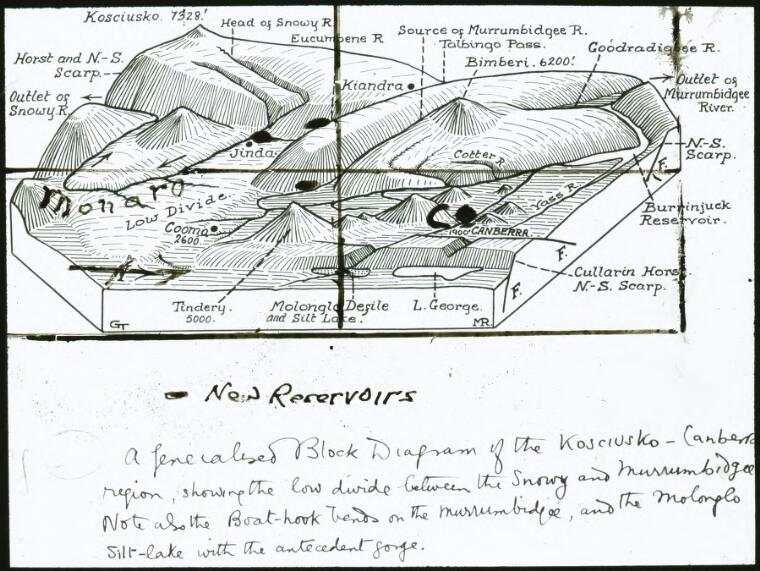 Kosciusko. 7328.'
Head of Snowy R.
Eucumbene R
Source of Murrumbidgee R.
Talbingo Pass.
Goodradigbee R.
Bimberi. 6200.'
Horst and N.-S.
Scarp.
Kiandra
Outlet of
Murrumbidgee
River.
Outlet of
Snowy R.
N.-S.
Scarp.
Jinda.
Cotter R
F.
Monaro
Low Divide.
Yass R.
Burrinjuck
Reservoir.
Cooma
2600.
C
1900' CANBERRA.
F.
Cullarin Horst
N.-S. Scarp.
F.
Tindery.
5000.
Molonglo Defile
and Silt Lake.
L. George.
GT
MR.
- New Reservoirs
A generalised Block Diagram of the Kosciusko - Canberra
region, showing the low divide between the Snowy and Murrumbidgee
Note also the Boat-hook bends on the Murrumbidgee, and the Molonglo
Silt-lake with the antecedent gorge.